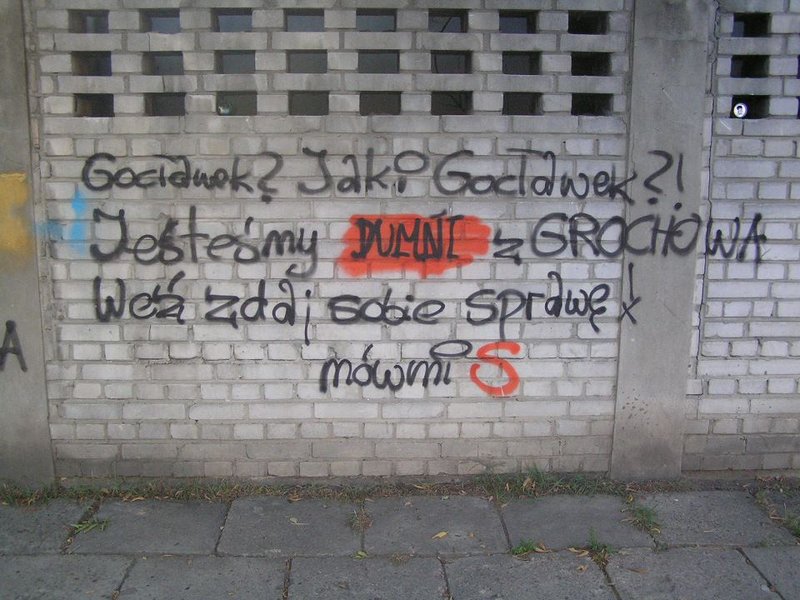 Gocławek? Jaki Gocławek?!
Jesteśmy DUMNI z GROCHOWA
Weź zdaj sobie sprawę!
mówmi S
A